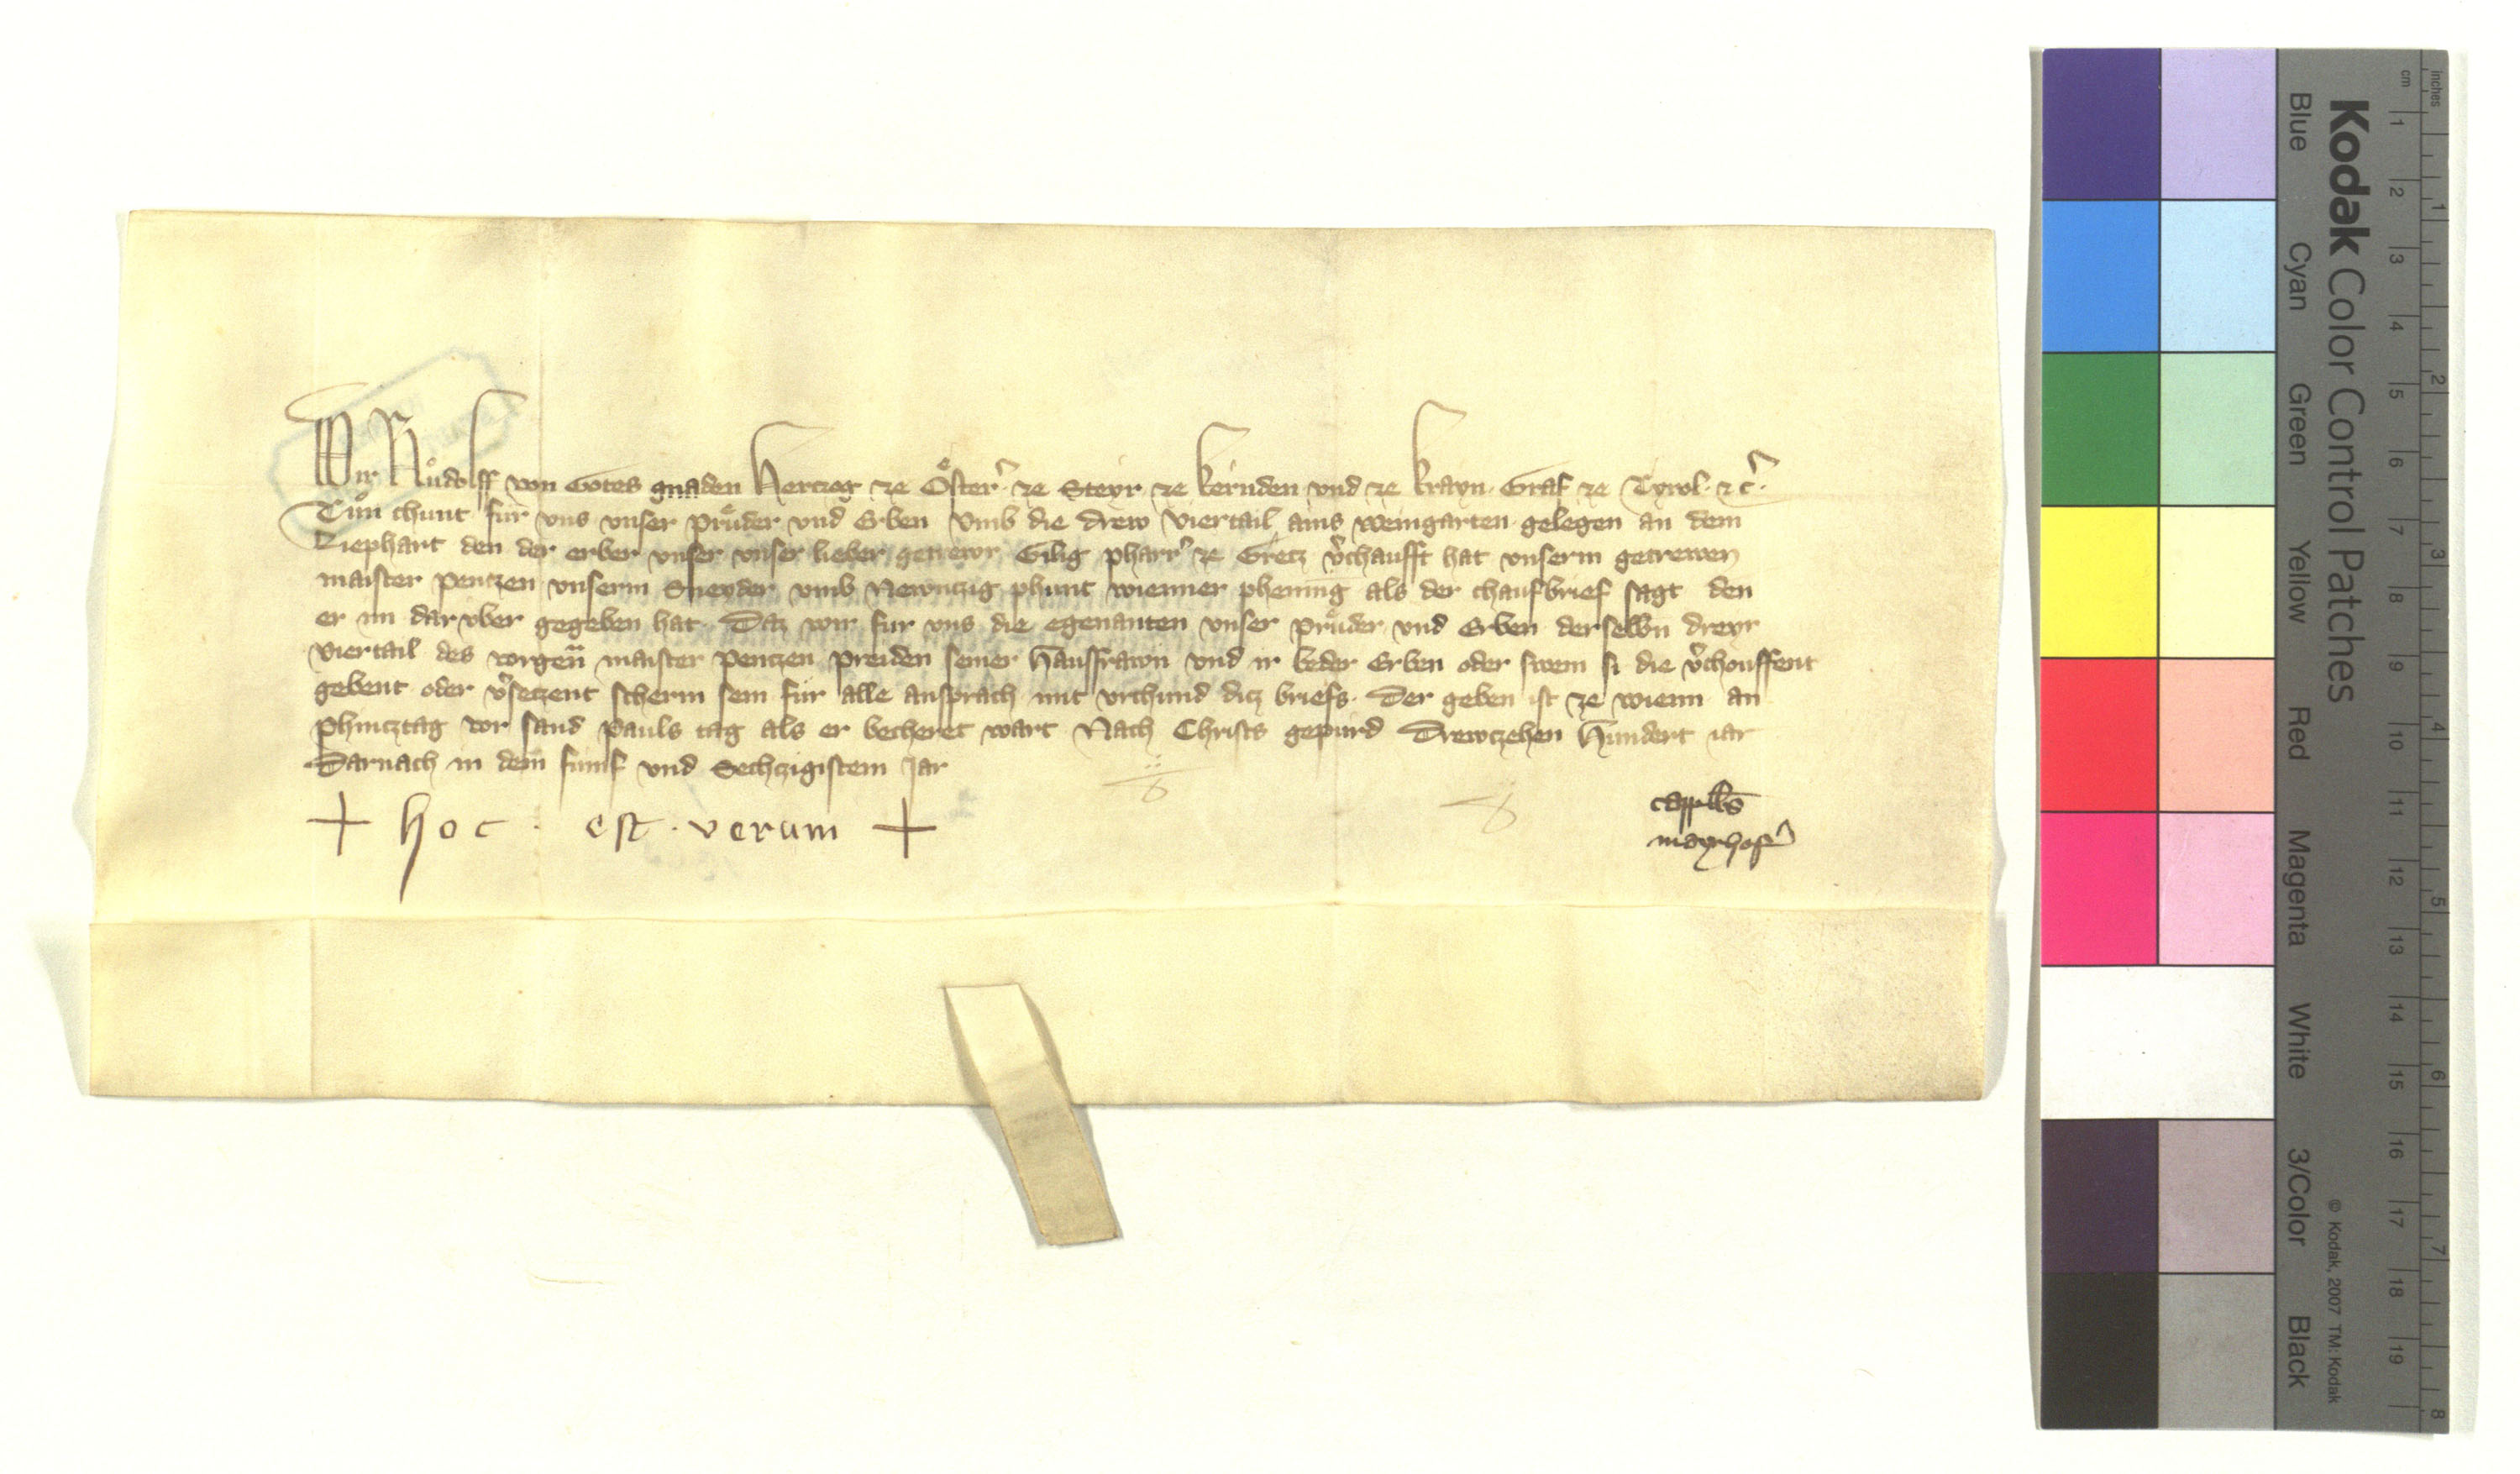 Wir Růdolff von Gotes gnaden Hertzog ze Ősterr̉. ze Steyr ze kernden vnd ze krayn. Graf ze Tyrol. ⁊c̉.
Tůn chunt fur vns vnser průder vnd Erben vmb die drew viertail ains weingarten gelegen an dem
Liephart den der erber vnser vnser lieber getrewr Gilig pharr̉ ze Gretz v̉chaufft hat vnserm getrewen
maister pentzen vnserm Sneyder vmb Newntzig phunt wienner phennīg als der chaufbrief sagt den
er im daruber gegeben hat. Daz wir fur vns die egenanten vnser průder vnd Erben derselbn̄ dreyr
viertail des vorgen̄ maister pentzen preiden seiner hausfrawn vnd ir beder Erben oder swem si die v̉chouffent
gebent oder v̉setzent scherm sein fur alle ansprach mit vrchund ditz briefs. Der geben ist ze wienn an
phintztag vor sand pauls tag als er becheret wart Nach Christs gepurd Drewtzehen hundert iar
Darnach in dem fumf vnd Sechtzigistem Jar
+ hoc . est . verum +
mayrhofer̉
Kodak Color Control Patches
Blue Cyan Green Yellow Red Magenta White 3/Color Black
© Kodak, 2007 TM: Kodak
inches 1 2 3 4 5 6 7 8
cm 1 2 3 4 5 6 7 8 9 10 11 12 13 14 15 16 17 18 19